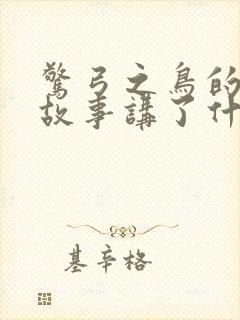 驚弓之鳥的
故事講了什
基辛格